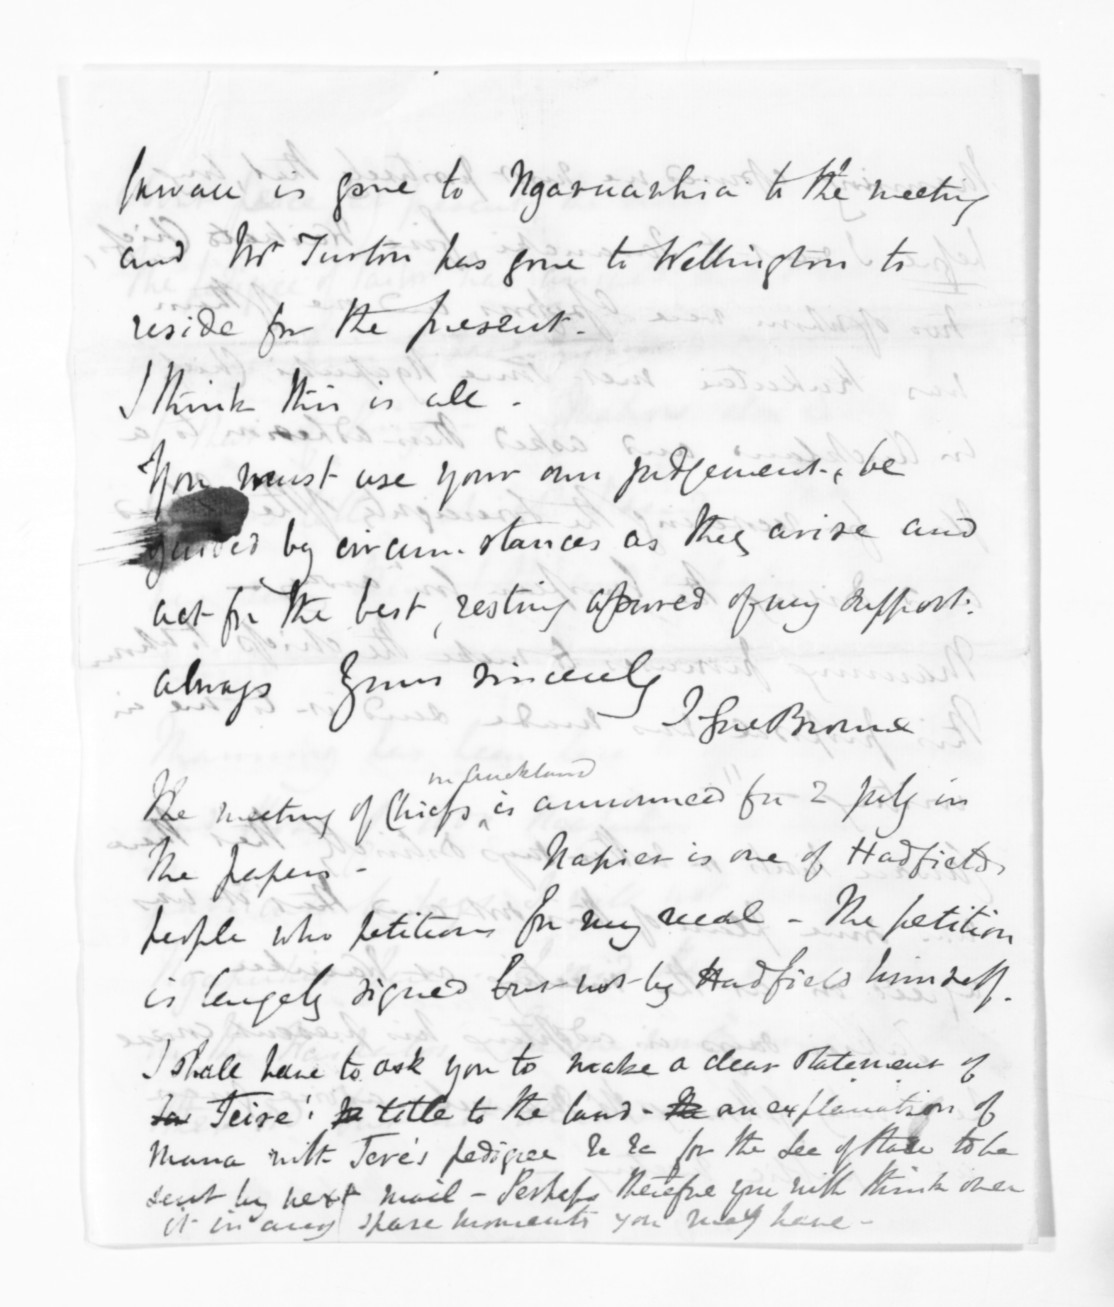 is gone to Ngaruawhia to the meeting
and Mr Turton has gone to Wellington to
reside for the present.
I think this is all.
You must use your own judgement, be
guided by circumstances as they arise and
act for the best, resting assured of my support.
always Yours sincerely
T Gore Browne
in Auckland
The meeting of Chiefs ^ is announced for 2 July in
the papers - Napier is one of Hadfields
people who petitions for my recal - The petition
is largely signed but not by Hadfield himself.
I shall have to ask you to make a clear statement of
Teira's title to the land - an explanation of
Mana with Teira's pedigree &c &c for the Sec of State to be
sent by next mail - Perhaps therefore you will think over
it in any spare moments you may have -